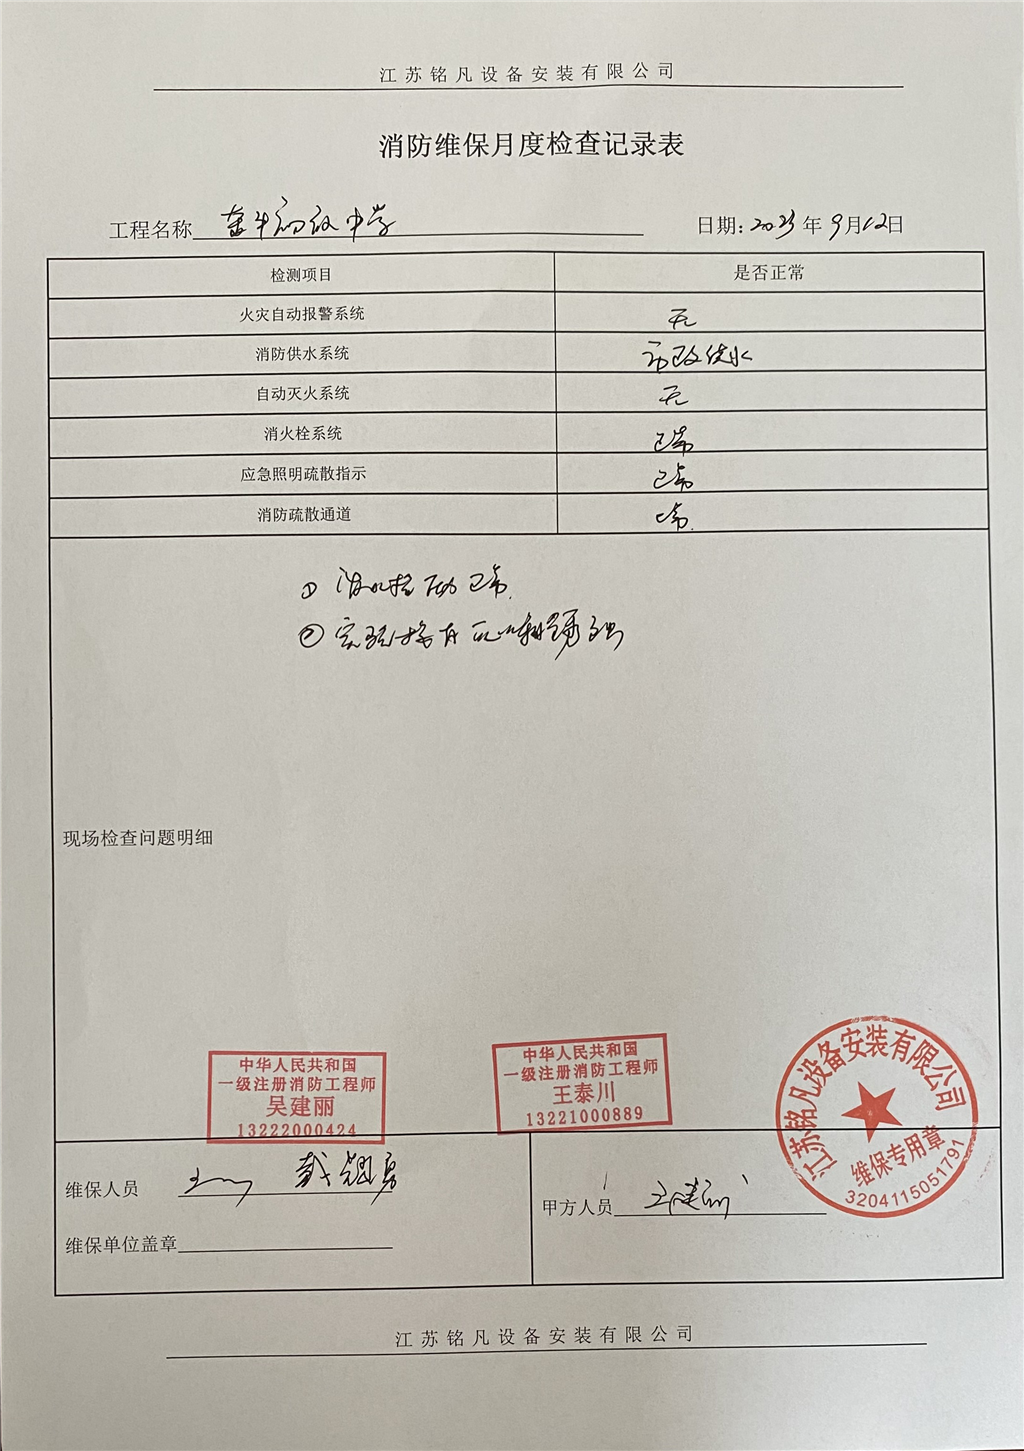 江苏铭凡设备安装有限公司
消防维保月度检查记录表
工程名称 初级中学 日期: 2023年9月12日
检测项目 是否正常
火灾自动报警系统 无
消防供水系统 市政供水
自动灭火系统 无
消火栓系统 正常
应急照明疏散指示 正常
消防疏散通道 正常.
① 消火栓 正常.
②
现场检查问题明细
中华人民共和国
一级注册消防工程师
吴建丽
13222000424
中华人民共和国
一级注册消防工程师
王泰川
13221000889
江苏铭凡设备安装有限公司
维保专用章
3204115051791
维保人员
甲方人员
维保单位盖章
江苏铭凡设备安装有限公司